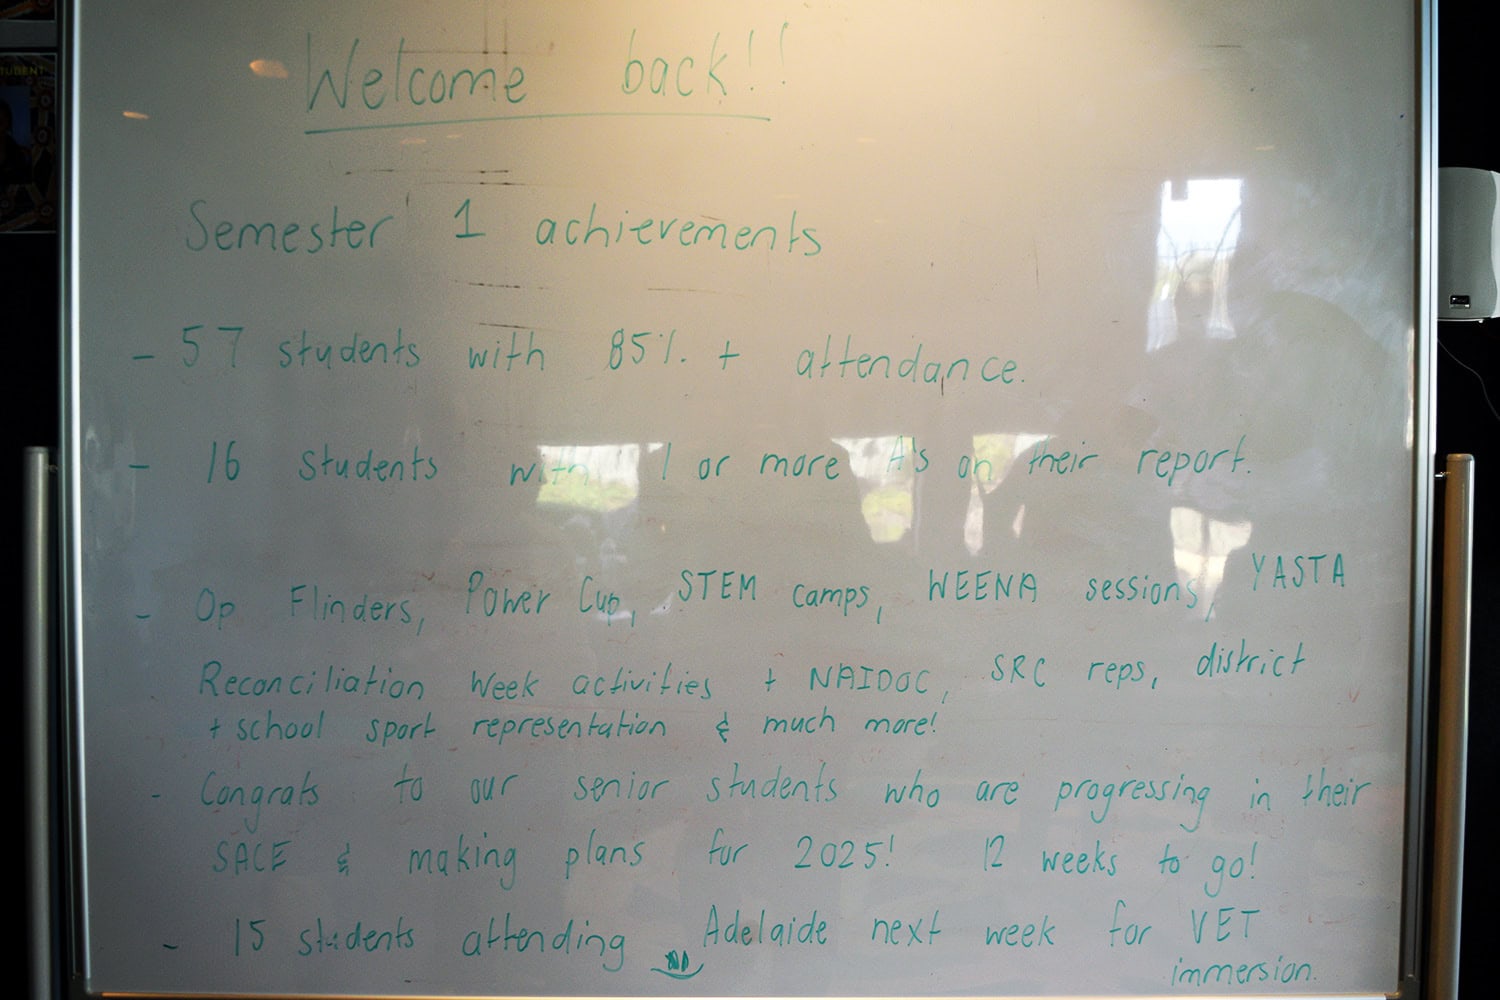 TUDENT
Welcome back!!
Semester 1 achievements
- 57 students with 85% + attendance.
- 16 students with 1 or more A's on their report.
- Op Flinders, Power Cup, STEM camps, WEENA sessions, YASTA
Reconciliation Week activities + NAIDOC, SRC reps, district
+ school sport representation & much more!
- Congrats to our senior students who are progressing in their
SACE & making plans for 2025! 12 weeks to go!
- 15 students attending Adelaide next week for VET
immersion.